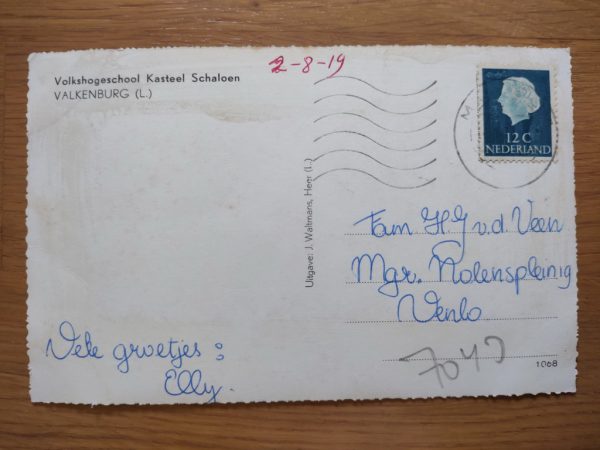 Volkshogeschool Kasteel Schaloen
VALKENBURG (L.)
2-8-19
12 C
NEDERLAND
Uitgave: J. Waltmans, Heer (L.)
Fam. H.G v.d. Veen
Mgr. Nolensplein 19
Venlo
Vele groetjes:
Elly.
1068